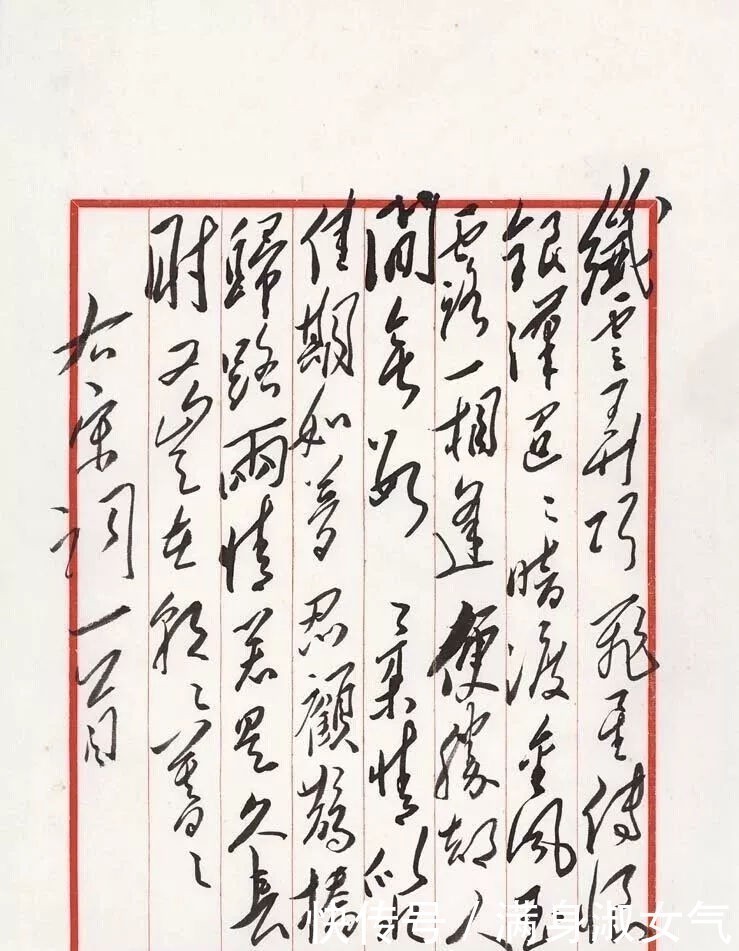 纖雲弄巧飛星傳恨
銀漢迢〻暗渡金風玉
露一相逢便勝却人
間無數柔情似
佳期如夢忍顧鵲橋
歸路兩情若是久長
時又豈在朝〻暮〻
右宋詞一首
快传号 / 满身淑女气